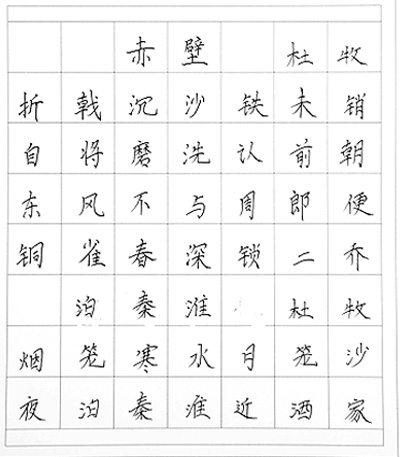 赤壁 杜牧
折戟沉沙铁未销
自将磨洗认前朝
东风不与周郎便
铜雀春深锁二乔
泊秦淮 杜牧
烟笼寒水月笼沙
夜泊秦淮近酒家